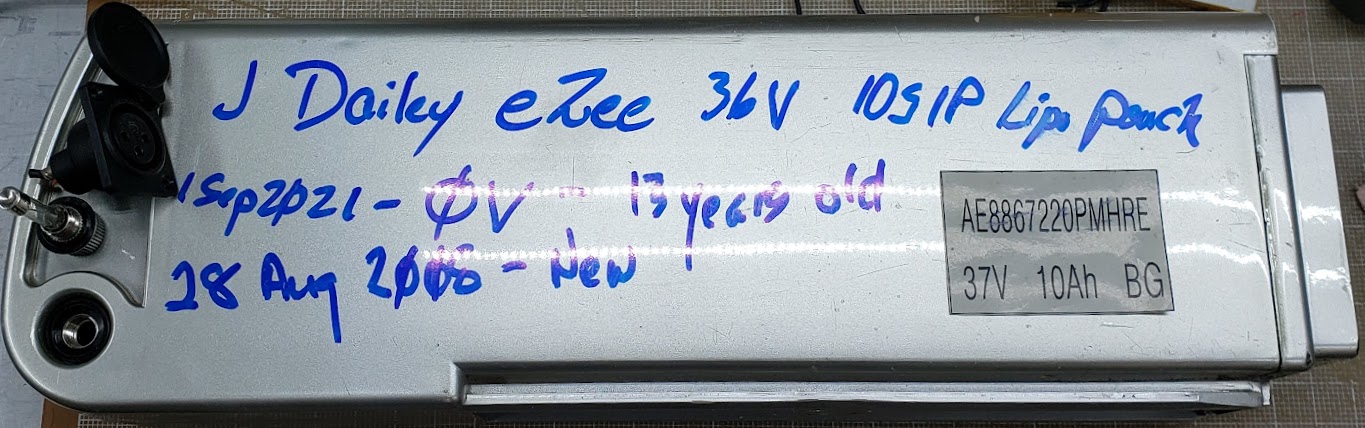 J Dailey eZee 36V 10S1P Lipo pouch
1Sep2021 - 0V - 13 years old
28 Aug 2008 - New
AE8867220PMHRE
37V 10Ah BG